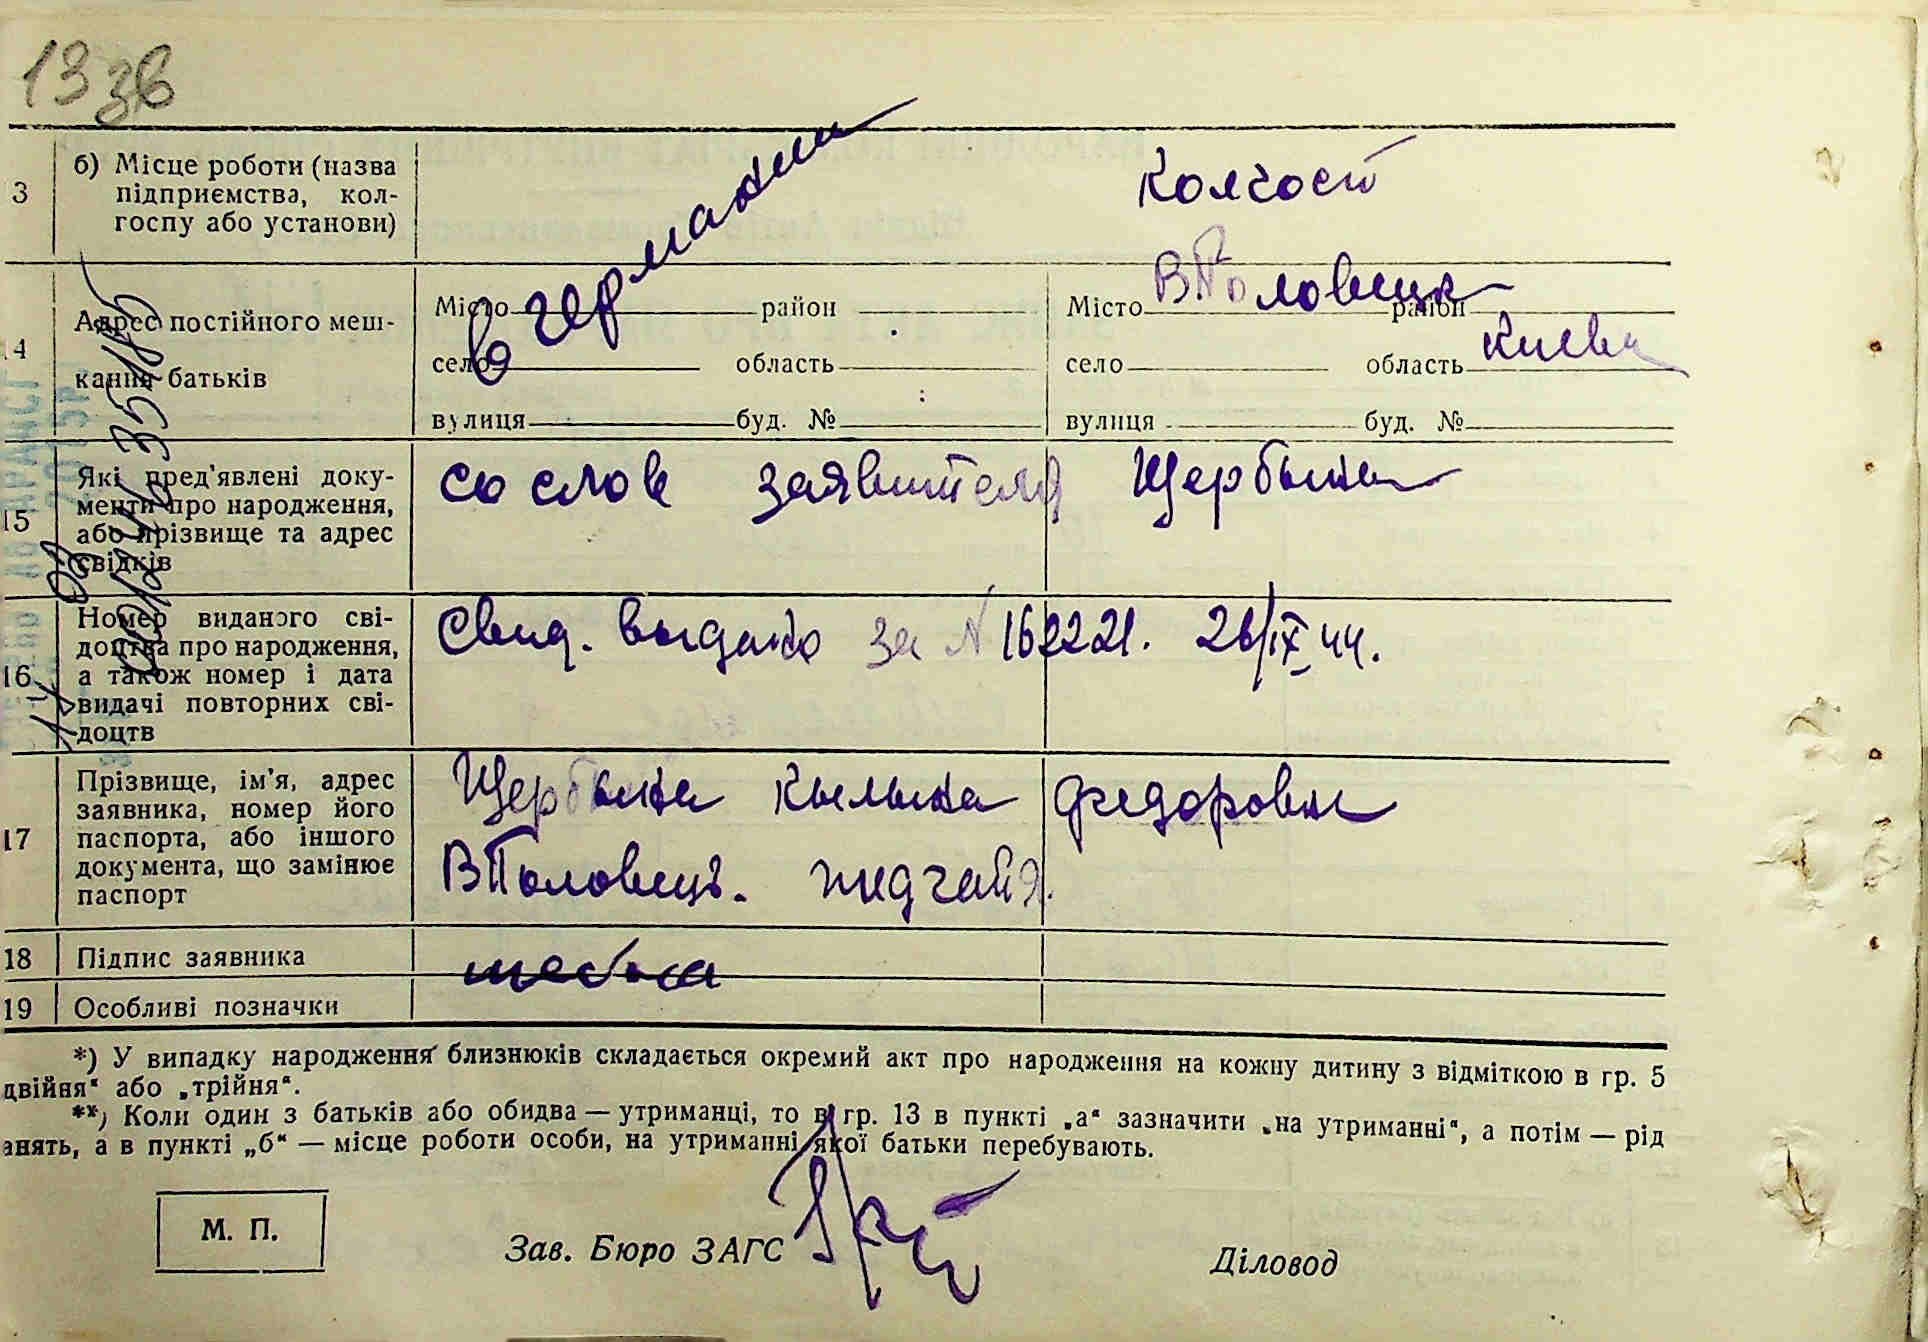 13 зв
3
б) Місце роботи (назва
підприємства, кол-
госпу або установи)
в германии
Колгосп
14
Адрес постійного меш-
кання батьків
Місто район
село область
вулиця буд. №
Місто В Половецк район
село область Киевск
вулиця буд. №
15
Які пред'явлені доку-
менти про народження,
або прізвище та адрес
свідків
со слов заявителя Щербына
16
Номер виданого сві-
доцтва про народження,
а також номер і дата
видачі повторних сві-
доцтв
Свид. выдано за № 162221. 26/IX 44.
17
Прізвище, ім'я, адрес
заявника, номер його
паспорта, або іншого
документа, що замінює
паспорт
Щербына Кылына Федоровы
В Половець.
18
Підпис заявника
19
Особливі позначки
*) У випадку народження близнюків складається окремий акт про народження на кожну дитину з відміткою в гр. 5
двійня“ або „трійня“.
**) Коли один з батьків або обидва — утриманці, то в гр. 13 в пункті „а“ зазначити „на утриманні“, а потім — рід
анять, а в пункті „б“ — місце роботи особи, на утриманні якої батьки перебувають.
М. П.
Зав. Бюро ЗАГС
Діловод